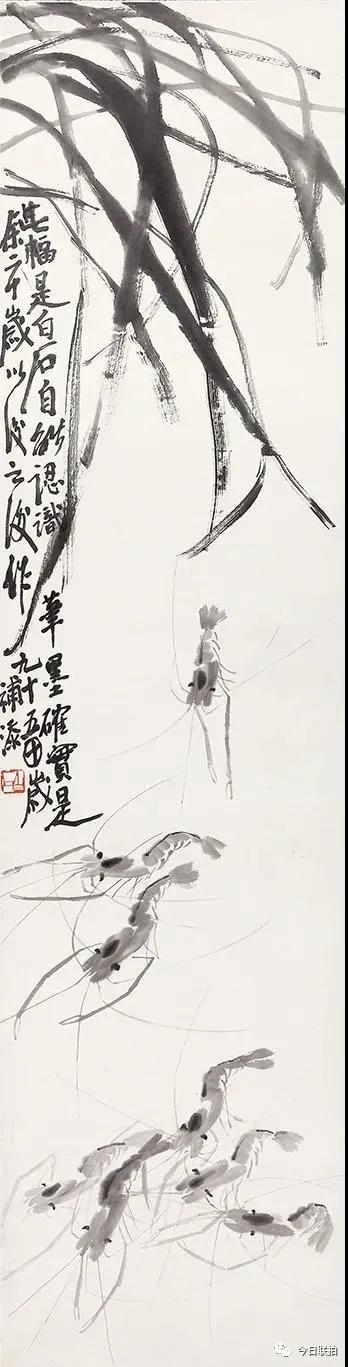 此幅是白石自能認識筆墨確實是
余六十歲以後之後作九十五歲
補添
今日联拍